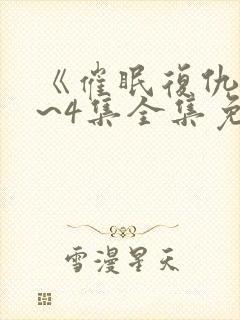 《催眠復仇
~4集全集免
雪漫星天